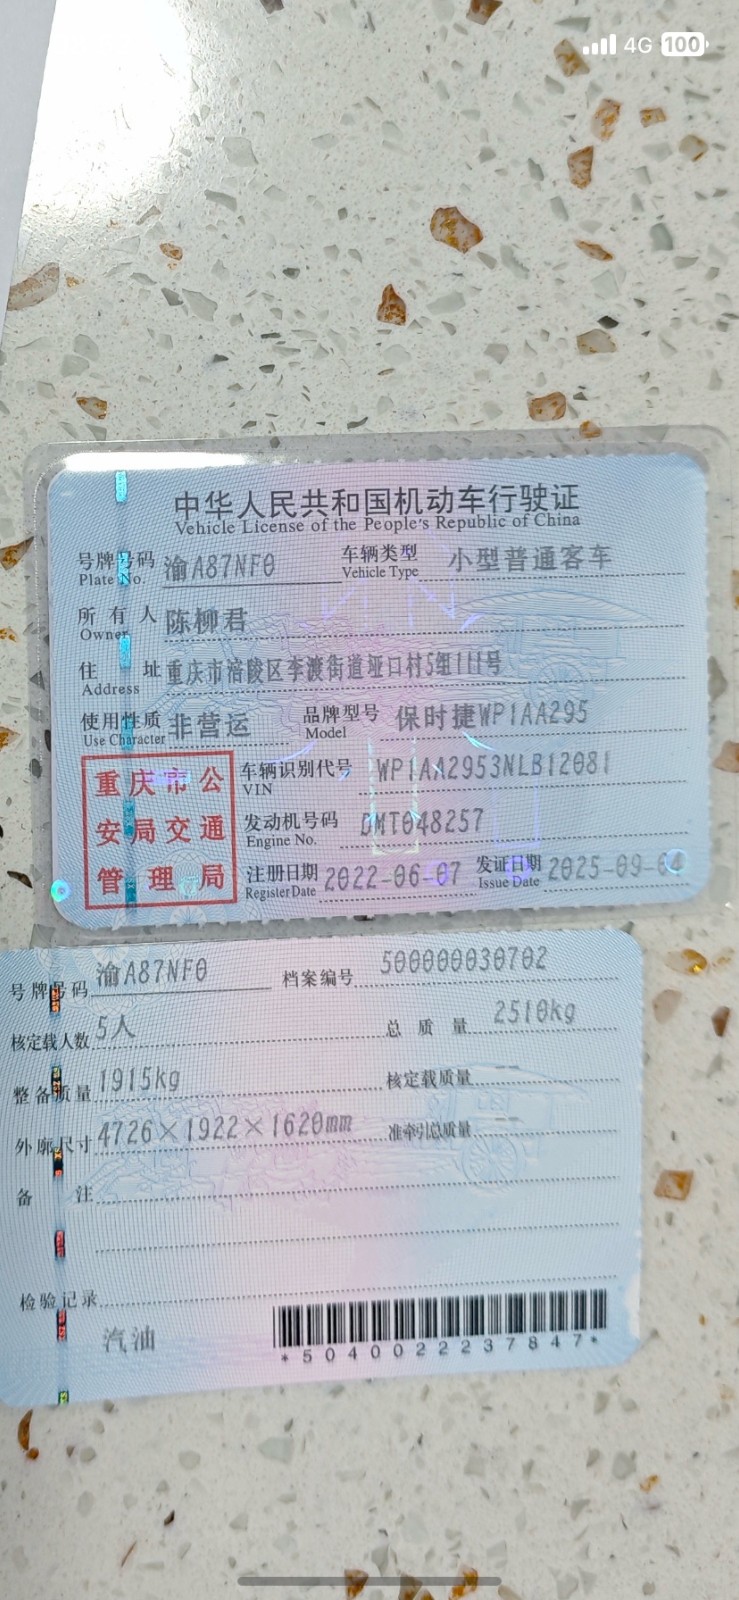 4G 100
中华人民共和国机动车行驶证
Vehicle License of the People's Republic of China
号牌号码 渝A87NF0 车辆类型 小型普通客车
Plate No. Vehicle Type
所有人 陈柳君
Owner
住址 重庆市涪陵区李渡街道垭口村5组111号
Address
使用性质 非营运 品牌型号 保时捷WP1AA295
Use Character Model
重庆市公
安局交通
管理局
车辆识别代号 WP1AA2953NLB12081
VIN
发动机号码 DMT048257
Engine No.
注册日期 2022-06-07 发证日期 2025-09-04
Register Date Issue Date
号牌号码 渝A87NF0 档案编号 500000030702
核定载人数 5人 总质量 2510kg
整备质量 1915kg 核定载质量 --
外廓尺寸 4726×1922×1620mm 准牵引总质量 --
备注
检验记录
汽油
*5040022237847*